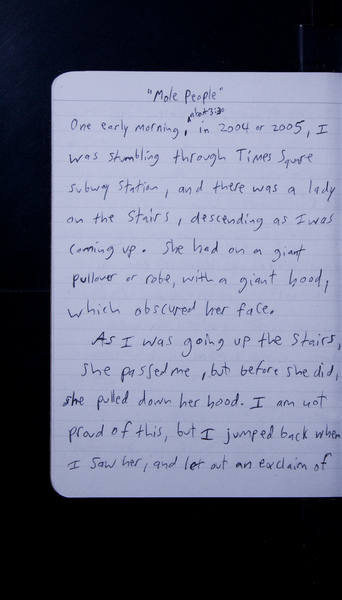 "Mole People"
about 3:30
One early morning, in 2004 or 2005, I
was stumbling through Times Square
subway station, and there was a lady
on the stairs, descending as I was
coming up. She had on a giant
pullover or robe, with a giant hood,
which obscured her face.
As I was going up the stairs,
she passed me, but before she did,
she pulled down her hood. I am not
proud of this, but I jumped back when
I saw her, and let out an exclaim of